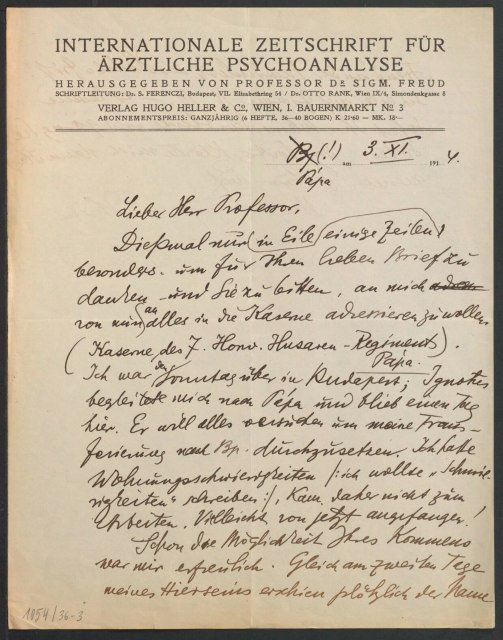 INTERNATIONALE ZEITSCHRIFT FÜR
ÄRZTLICHE PSYCHOANALYSE
HERAUSGEGEBEN VON PROFESSOR DR SIGM. FREUD
SCHRIFTLEITUNG: Dr. S. FERENCZI, Budapest, VII. Elisabethring 54 / Dr. OTTO RANK, Wien IX/4, Simondenkgasse 8
VERLAG HUGO HELLER & Co., WIEN, I. BAUERNMARKT No 3
ABONNEMENTSPREIS: GANZJÄHRIG (6 HEFTE, 36—40 BOGEN) K 21·60 = MK. 18·—
Bp (!) am 3. XI. 191 4.
Pápa
Lieber Herr Professor,
Dießmal nur in Eile einige Zeilen,
besonders um für Ihren lieben Brief zu
danken - und Sie zu bitten, an mich
von nun an alles in die Kaserne adressieren zu wollen
(Kaserne des 7. Honv. Husaren-Regiments).
Pápa.
Ich war den Sonntag über in Budapest; Ignotus
begleitete mich nach Pápa und blieb einen Tag
hier. Er will alles versuchen um meine Trans-
ferierung nach Bp. durchzusetzen. Ich hatte
Wohnungsschwierigkeiten /: ich wollte „Schmie-
rigkeiten“ schreiben :/, kam daher nicht zum
Arbeiten. Vielleicht von jetzt angefangen!
Schon die Möglichkeit Ihres Kommens
war mir erfreulich. Gleich am zweiten Tage
meines Hierseins erschien plötzlich der Name
1054/36-3